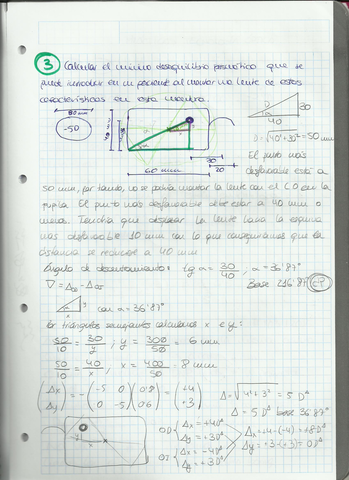 3 Calcular el mínimo desequilibrio prismático que se
puede introducir en un paciente al montar una lente de estas
características en esta montura.
-50
60 mm
20
30
D
30
40
D = √40²+30² = 50 mm
El punto más
desfavorable está a
50 mm, por tanto, no se podría montar la lente con el CO en la
pupila. El punto más desfavorable debe estar a 40 mm o
menos. Tendría que desplazar la lente hacia la esquina
más desfavorable 10 mm con lo que conseguiríamos que la
distancia se redujese a 40 mm.
Ángulo de descentramiento: tg α = 30/40, α = 36'87°
Base 216'87°
∇ = Δ - Δ
y con α = 36'87°
x
Por triángulos semejantes calculamos x e y:
50/10 = 30/y ; y = 300/50 = 6 mm
50/10 = 40/x , x = 400/50 = 8 mm
(Δx Δy) = - (-5 0 0 -5) (0'8 0'6) = (+4 +3)
Δ = √4²+3² = 5 D^Δ
Δ = 5 D^Δ base 36'87°
y
x
OD Δx = +4D^Δ
Δy = +3D^Δ
OI Δx = -4D^Δ
Δy = +3D^Δ
Δx = +4-(-4) = +8D^Δ
Δy = +3-(+3) = 0D^Δ